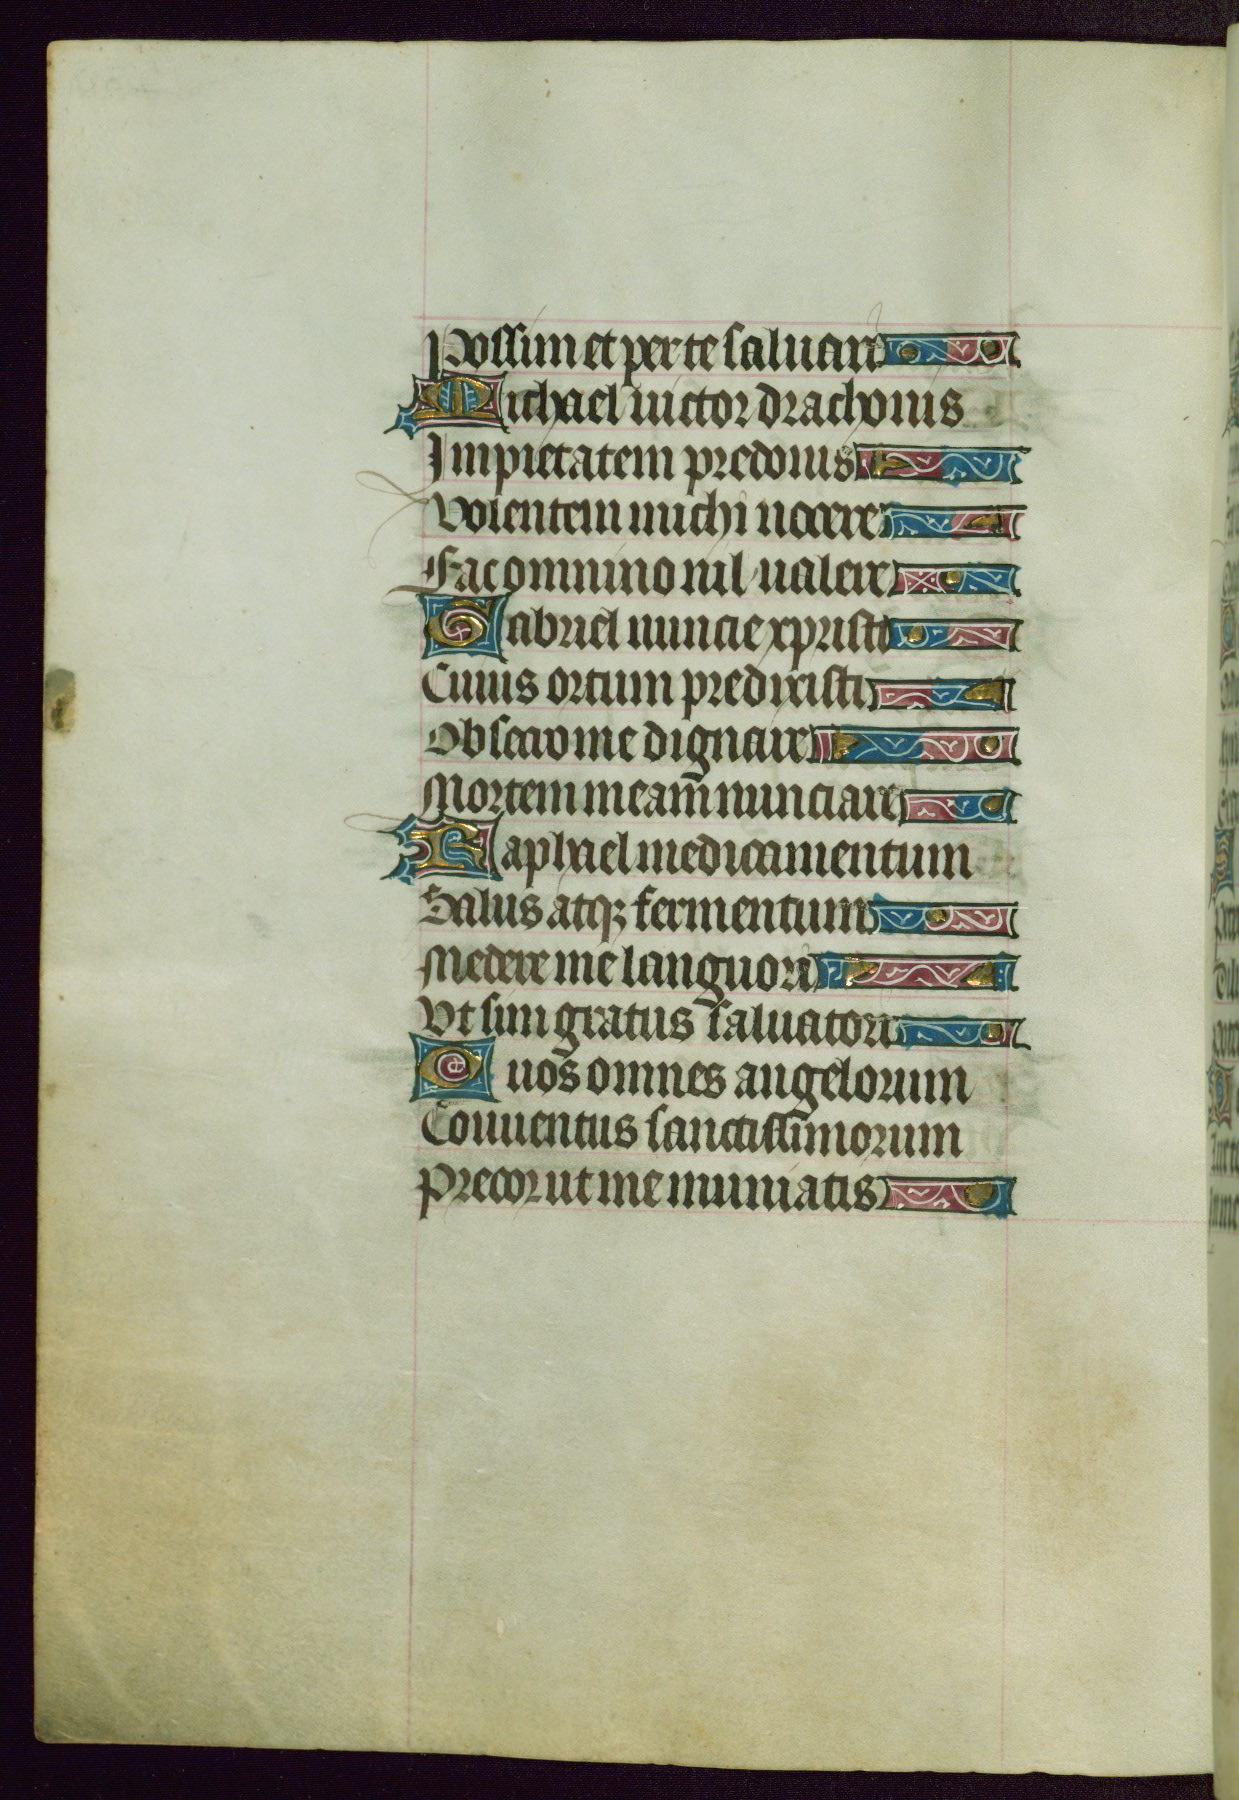 Possim et per te saluari
Michael uictor drachonis
Impietatem predonis
Volentem michi nocere
Fac omnino nil ualere
Gabriel nuncie xpristi
Cuius ortum predixisti
Obsecro me dignare
Mortem meam nunciare
Raphael medicamentum
Salus atqꝫ fermentum
Medere me languori
Vt sim gratus saluatori
E uos omnes angelorum
Conuentus sanctissimorum
Precor ut me muniatis